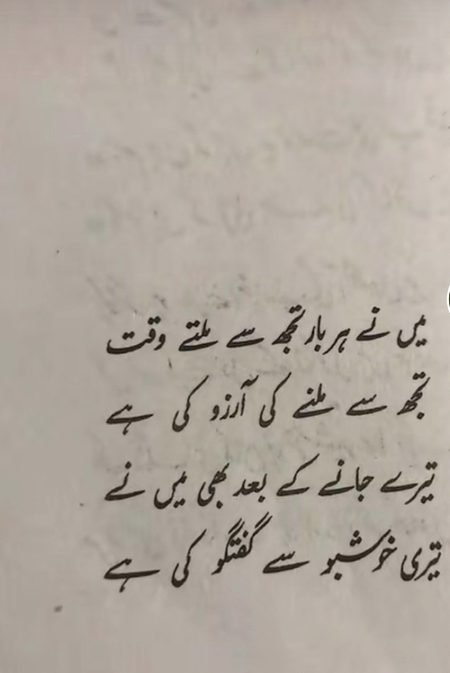 میں نے ہر بار تجھ سے ملتے وقت
تجھ سے ملنے کی آرزو کی ہے
تیرے جانے کے بعد بھی میں نے
تیری خوشبو سے گفتگو کی ہے